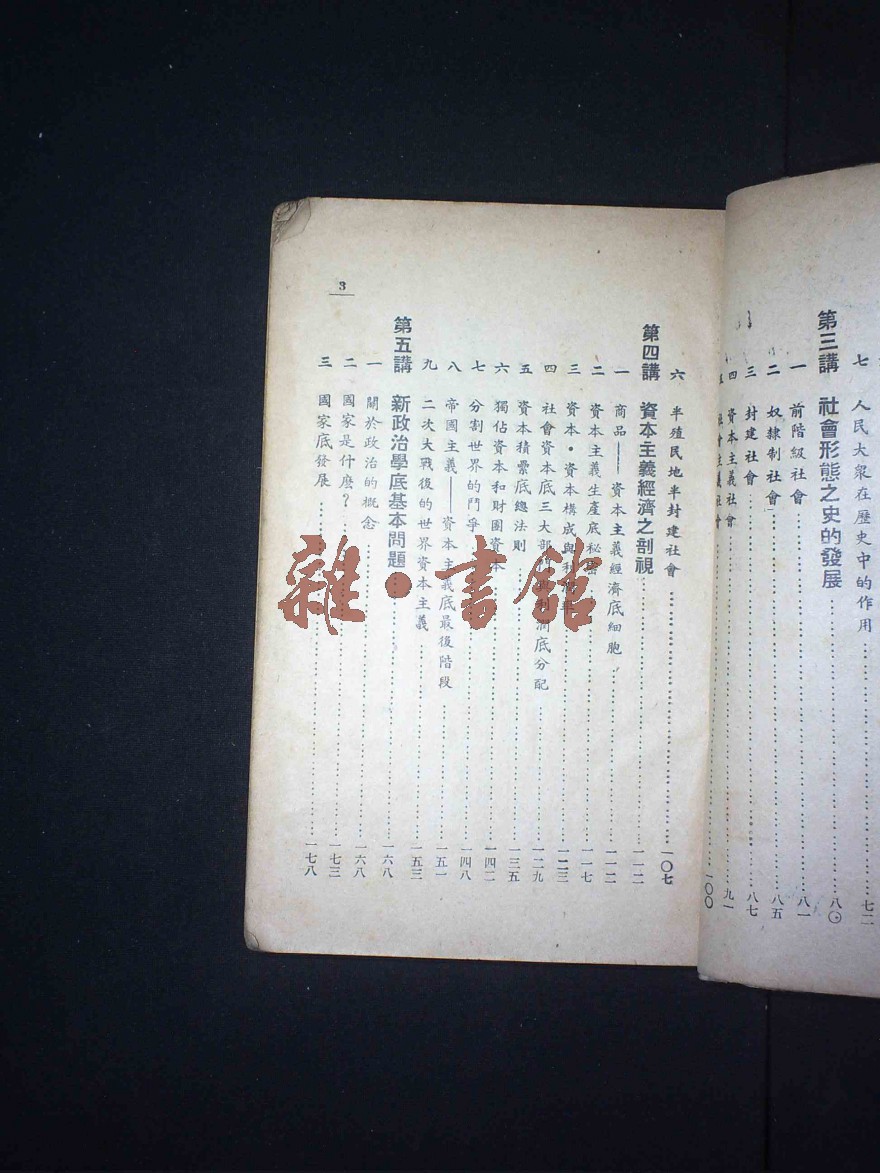 七 人民大衆在歷史中的作用 七二
第三講 社會形態之史的發展 八〇
一 前階級社會 八一
二 奴隸制社會 八五
三 封建社會 八七
四 資本主義社會 九一
五 社會主義社會 一〇〇
六 半殖民地半封建社會 一〇七
第四講 資本主義經濟之剖視 一一二
一 商品——資本主義經濟底細胞 一一二
二 資本主義生產底秘密 一一七
三 資本·資本構成與利潤率 一二三
四 社會資本底三大部 底分配 一二九
五 資本積纍底總法則 一三五
六 獨佔資本和財團資本 一四二
七 分割世界的鬥爭 一四八
八 帝國主義——資本主義底最後階段 一五一
九 二次大戰後的世界資本主義 一五三
第五講 新政治學底基本問題 一六八
一 關於政治的概念 一六八
二 國家是什麼？ 一七三
三 國家底發展 一七八
3
雜·書館